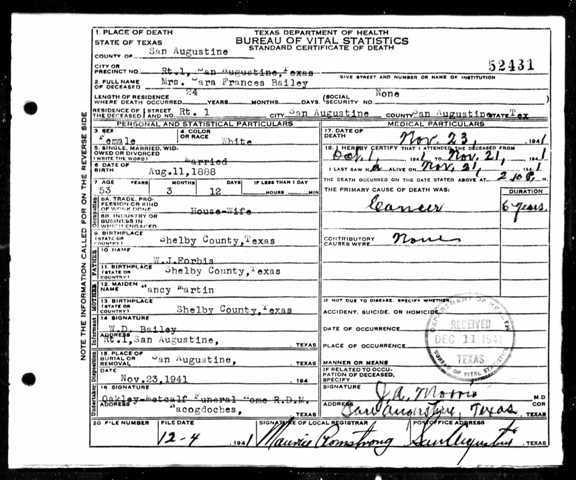 1. PLACE OF DEATH
STATE OF TEXAS
COUNTY OF San Augustine
TEXAS DEPARTMENT OF HEALTH
BUREAU OF VITAL STATISTICS
STANDARD CERTIFICATE OF DEATH
52431
CITY OR PRECINCT NO. Rt.1, San Augustine, Texas
GIVE STREET AND NUMBER OR NAME OF INSTITUTION
2. FULL NAME OF DECEASED Mrs. Cara Frances Bailey
LENGTH OF RESIDENCE WHERE DEATH OCCURRED 24 YEARS MONTHS DAYS
SOCIAL SECURITY NO. None
RESIDENCE OF THE DECEASED STREET NO. Rt. 1 CITY San Augustine COUNTY San Augustine STATE Tex
PERSONAL AND STATISTICAL PARTICULARS
3. SEX Female
4. COLOR OR RACE White
5. SINGLE, MARRIED, WIDOWED OR DIVORCED (WRITE THE WORD) Married
6. DATE OF BIRTH Aug.11,1888
7. AGE YEARS MONTHS DAYS IF LESS THAN 1 DAY
53 3 12 HOURS MIN.
8A. TRADE, PROFESSION OR KIND OF WORK DONE House-Wife
8B. INDUSTRY OR BUSINESS IN WHICH ENGAGED
9. BIRTHPLACE (STATE OR COUNTRY) Shelby County, Texas
10. NAME W.J.Forbis
11. BIRTHPLACE (STATE OR COUNTRY) Shelby County, Texas
12. MAIDEN NAME Nancy Martin
13. BIRTHPLACE (STATE OR COUNTRY) Shelby County, Texas
14. SIGNATURE W.D. Bailey
ADDRESS Rt.1, San Augustine, TEXAS
15. PLACE OF BURIAL OR REMOVAL San Augustine, TEXAS
DATE Nov.23,1941 , 194
16. SIGNATURE Oakley-Metcalf Funeral Home R.D.M.
ADDRESS Nacogdoches, TEXAS
MEDICAL PARTICULARS
17. DATE OF DEATH Nov. 23, 1941
18. I HEREBY CERTIFY THAT I ATTENDED THE DECEASED FROM
Oct. 1, 1941 TO Nov. 21, 1941
I LAST SAW H ALIVE ON Nov. 21, 1941
THE DEATH OCCURRED ON THE DATE STATED ABOVE AT
THE PRIMARY CAUSE OF DEATH WAS: DURATION
Cancer 6 years
CONTRIBUTORY CAUSES WERE: None
IF NOT DUE TO DISEASE, SPECIFY WHETHER:
ACCIDENT, SUICIDE, OR HOMICIDE
DATE OF OCCURRENCE
PLACE OF OCCURRENCE
MANNER OR MEANS
IF RELATED TO OCCUPATION OF DECEASED, SPECIFY
SIGNATURE J.A. Morris M.D.
ADDRESS San Augustine, Texas COR
DEPARTMENT OF HEALTH
RECEIVED
DEC 11 1941
TEXAS
BUREAU OF VITAL STATISTICS
20. FILE NUMBER
FILE DATE 12-4 1941
SIGNATURE OF LOCAL REGISTRAR Maurice Armstrong
POST-OFFICE ADDRESS San Augustine TEXAS
NOTE THE INFORMATION CALLED FOR ON THE REVERSE SIDE
Occupation
FATHER
MOTHER
Informant
Undertaker